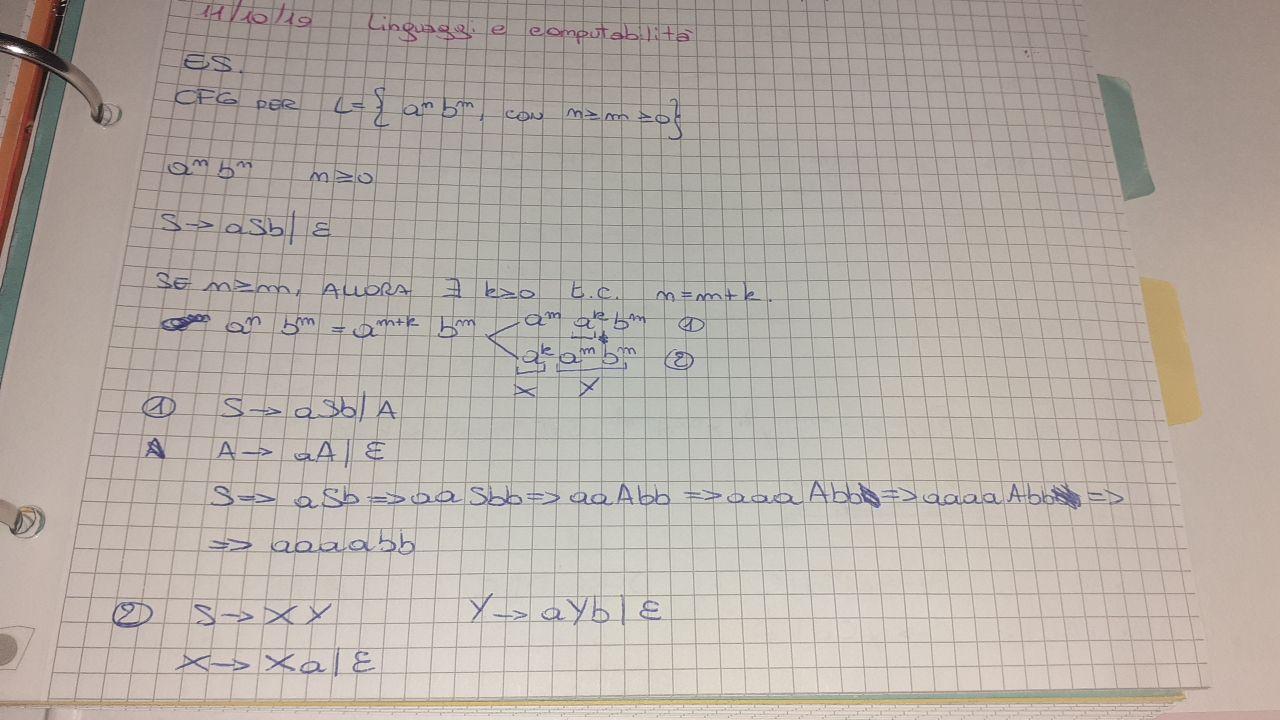 11/10/19 Linguaggi e computabilità
ES.
CFG PER L={ aⁿ bᵐ, CON n≥m≥0}
aⁿ bⁿ n≥0
S→ aSb| ε
SE n≥m, ALLORA ∃ k≥0 t.c. n=m+k.
aⁿ bᵐ = aᵐ⁺ᵏ bᵐ < aᵐ aᵏ bᵐ ①
aᵏ aᵐ bᵐ ②
X Y
① S→ aSb| A
A→ aA| ε
S=> aSb=>aaSbb=>aaAbb =>aaaAbb=>aaaaAbb=>
=> aaaabb
② S→XY Y→aYb| ε
X→ Xa| ε